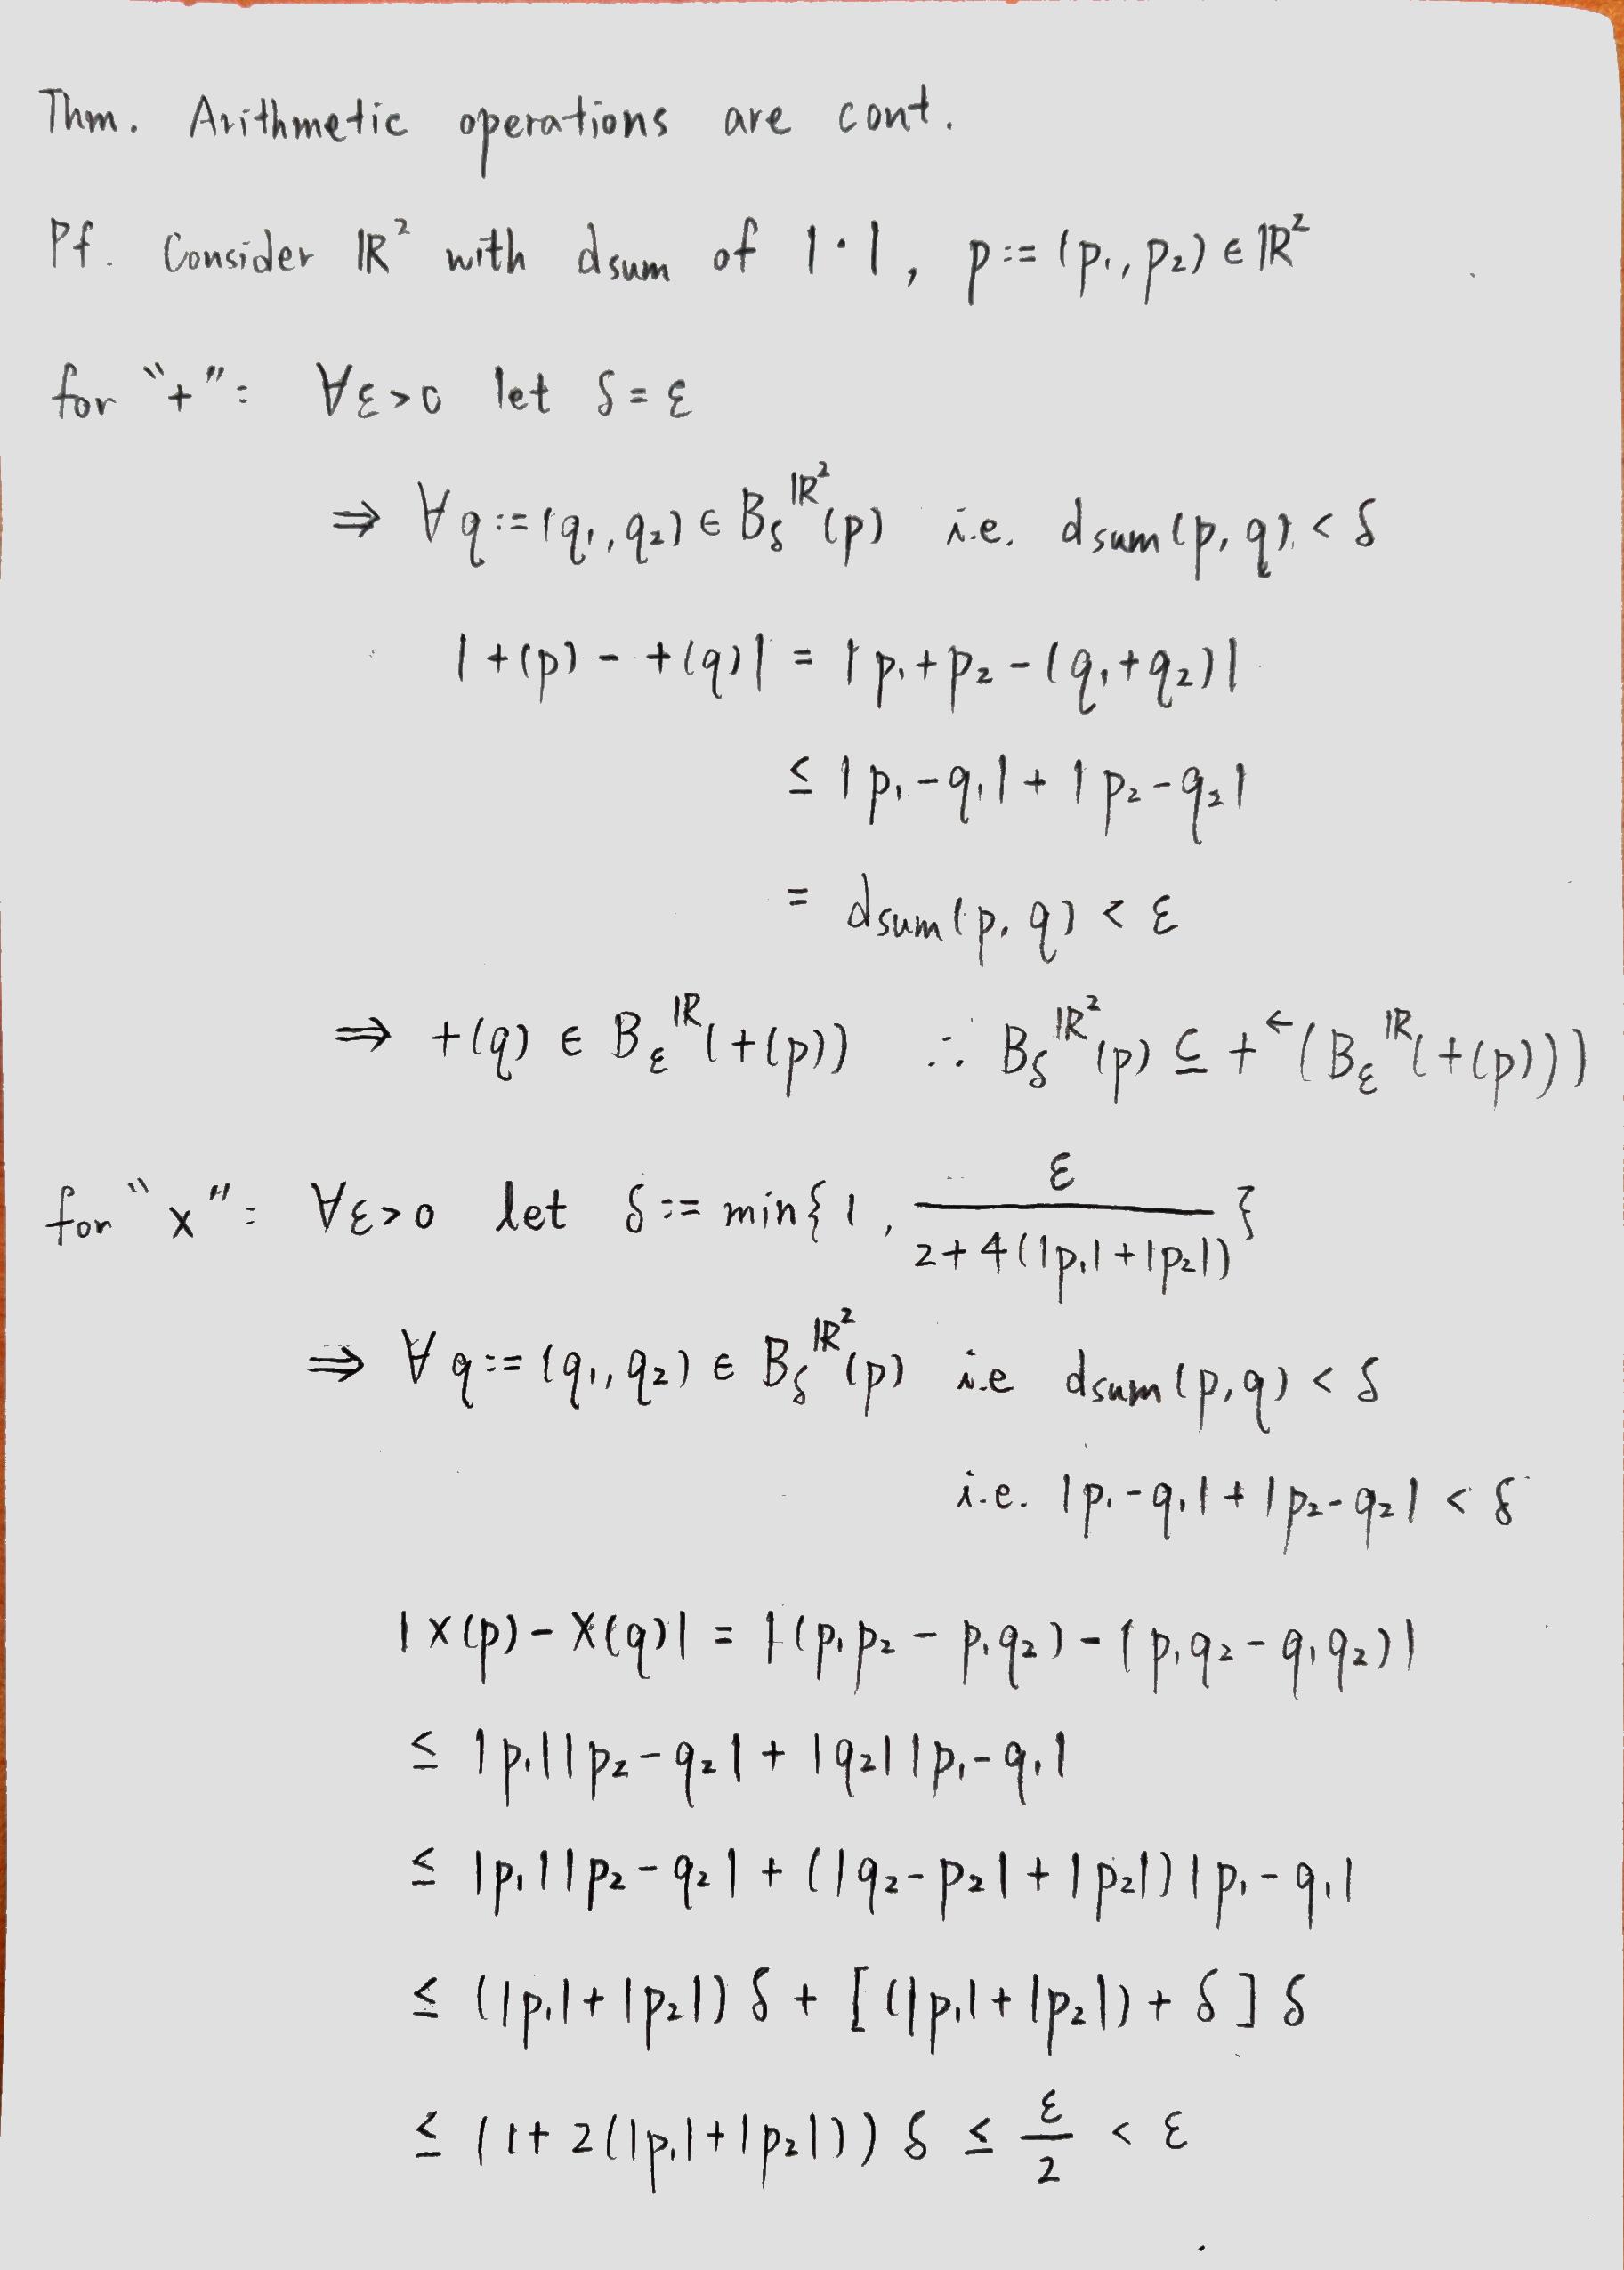 Thm. Arithmetic operations are cont.
Pf. Consider ℝ² with d_sum of |·|, p := (p₁, p₂) ∈ ℝ²
for "+": ∀ε>0 let δ = ε
⇒ ∀q := (q₁, q₂) ∈ B_δ^{ℝ²}(p) i.e. d_sum(p, q) < δ
|+(p) - +(q)| = |p₁+p₂-(q₁+q₂)|
≤ |p₁-q₁| + |p₂-q₂|
= d_sum(p, q) < ε
⇒ +(q) ∈ B_ε^{ℝ}(+(p)) ∴ B_δ^{ℝ²}(p) ⊆ +^←(B_ε^{ℝ}(+(p)))
for "×": ∀ε>0 let δ := min{1, ε/(2+4(|p₁|+|p₂|))}
⇒ ∀q := (q₁, q₂) ∈ B_δ^{ℝ²}(p) i.e d_sum(p, q) < δ
i.e. |p₁-q₁| + |p₂-q₂| < δ
|×(p) - ×(q)| = |(p₁p₂ - p₁q₂) - (p₁q₂ - q₁q₂)|
≤ |p₁||p₂-q₂| + |q₂||p₁-q₁|
≤ |p₁||p₂-q₂| + (|q₂-p₂| + |p₂|)|p₁-q₁|
≤ (|p₁|+|p₂|)δ + [(|p₁|+|p₂|)+δ]δ
≤ (1+2(|p₁|+|p₂|))δ ≤ ε/2 < ε